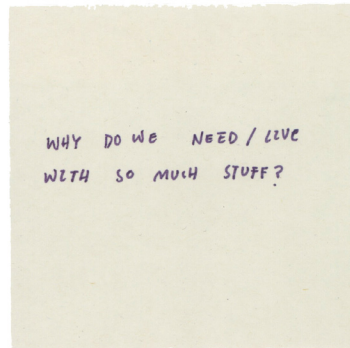 WHY DO WE NEED / LIVE
WITH SO MUCH STUFF?